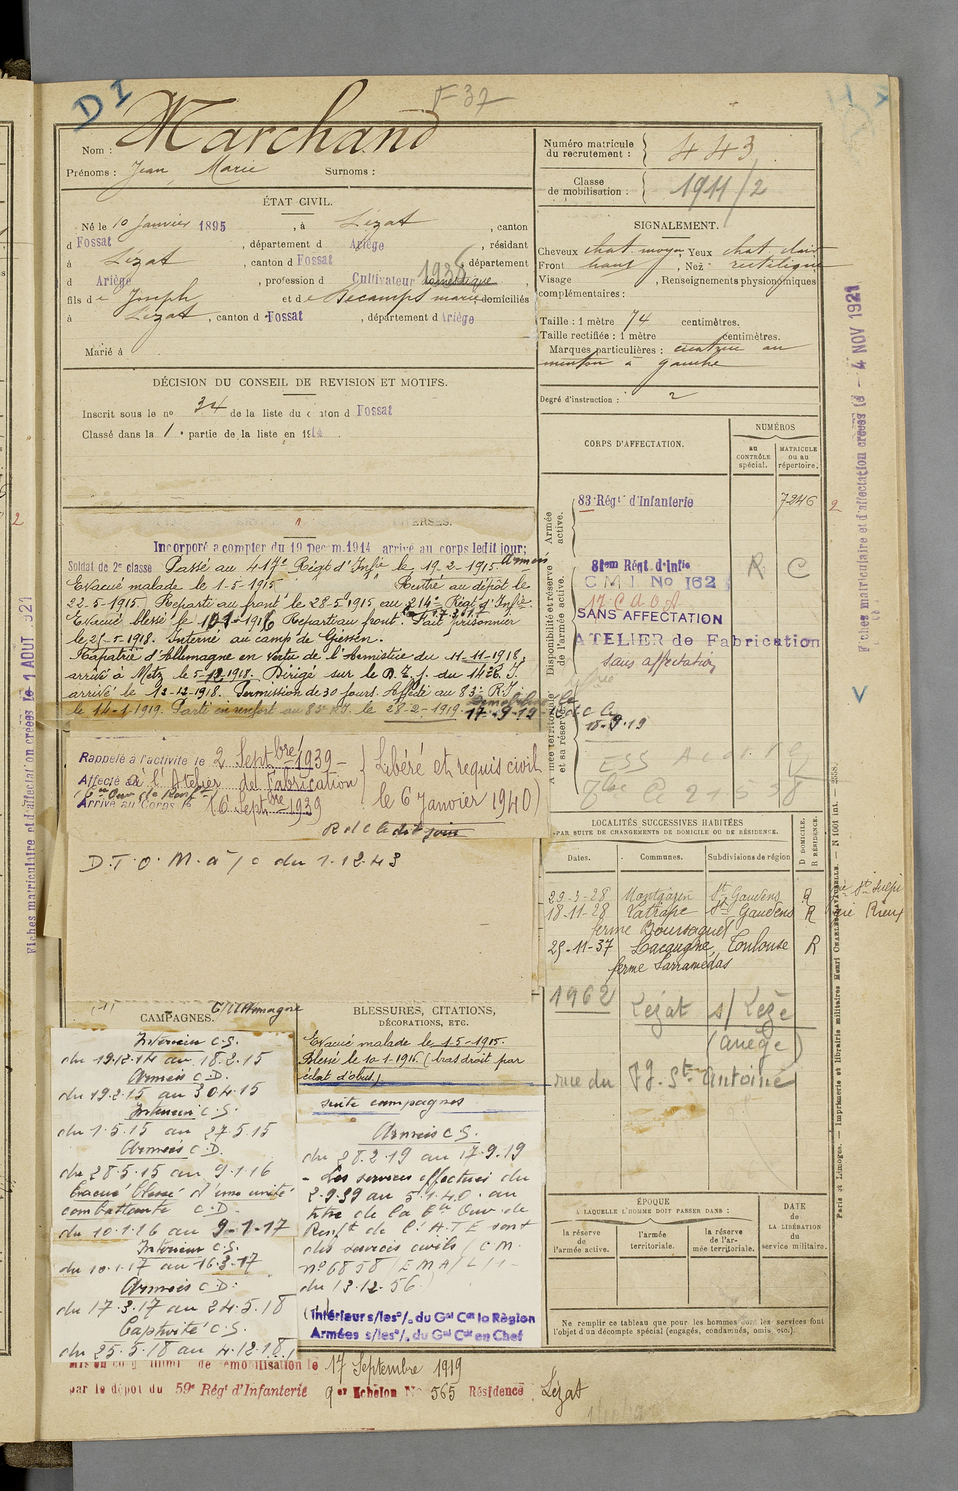 D I
F 37
Nom : Marchand
Prénoms : Jean Marie Surnoms :
ÉTAT CIVIL.
Né le 10 Janvier 1895, à Lézat, canton
d Fossat, département d Ariège, résidant
à Lézat, canton d Fossat, département
d Ariège, profession d Cultivateur domestique 1938
fils de Joseph et de Decamps marie domiciliés
à Lézat, canton d Fossat, département d Ariège
Marié à
DÉCISION DU CONSEIL DE REVISION ET MOTIFS.
Inscrit sous le no 34 de la liste du canton d Fossat
Classé dans la 1e partie de la liste en 1914
Incorporé a compter du 19 Decem. 1914 arrivé au corps ledit jour;
Soldat de 2e classe Passé au 417e Régt d'Infie le 19-2-1915 Armées
Evacué malade le 1-5-1915 Rentré au dépôt le
22-5-1915. Reparti au front le 28-5-1915, au 214e Régt d'Infie.
Evacué blessé le 10-1-1916 Reparti au front. Fait prisonnier
le 25-5-1918. Interné au camp de Giessen.
Rapatrié d'Allemagne en vertu de l'Armistice du 11-11-1918,
arrivé à Metz le 5-12-1918. Dirigé sur le D. E. f. du 142e R. I.
arrivé le 12-12-1918. Permission de 30 jours. Affecté au 83e R.I.
le 14-1-1919. Parti en renfort au 83e R.I. le 28-2-1919. Démobilisé le
17-9-19
Rappelé à l'activité le 2 Septbre 1939 –
Affecté à l'Atelier de Fabrication
(6e Ouv. de Renft)
Arrivé au Corps le (6 Septbre 1939
Libéré et requis civil
le 6 Janvier 1940)
R d c le dit jour
D. T. O. M. à / c du 1.12.43
CAMPAGNES. C/ Allemagne
Intérieur C.S.
du 19.12.14 au 18.2.15
Armées C.D.
du 19.2.15 au 30.4.15
Intérieur C.S.
du 1.5.15 au 27.5.15
Armées C.D.
du 28.5.15 au 9.1.16
Evacué blessé d'une unité
combattante C.D.
du 10.1.16 au 9-1-17
Intérieur C.S.
du 10.1.17 au 16.3.17
Armées C.D.
du 17.3.17 au 24.5.18
Captivité C.S.
du 25.5.18 au 4.12.18
BLESSURES, CITATIONS,
DÉCORATIONS, ETC.
Evacué malade le 1-5-1915.
Blessé le 10-1-1916. (bras droit par
éclat d'obus.)
suite campagnes
Armées C.S.
du 28.2.19 au 17.9.19
– Les services effectués du
2-9-39 au 5.1.40. au
titre de la 6e Ouv. de
Renft de l'A.T.E sont
des services civils (C.M.
no 6858/EMA/L
du 13.12.56.)
Intérieur s/les o/. du Gal Ct la Région
Armées s/les o/. du Gal Ct en Chef
Mis en congé illimité de démobilisation le 17 Septembre 1919
par le dépôt du 59e Rég' d'Infanterie 9er Echelon No 565 Résidence Lézat
Numéro matricule
du recrutement : 443
Classe
de mobilisation : 1911/2
SIGNALEMENT.
Cheveux chat. moyen, Yeux chat clair
Front haut, Nez rectiligne
Visage , Renseignements physionomiques
complémentaires :
Taille : 1 mètre 74 centimètres.
Taille rectifiée : 1 mètre centimètres.
Marques particulières : cicatrice au
menton à gauche
Degré d'instruction : 2
CORPS D'AFFECTATION.
NUMÉROS
au
CONTRÔLE
spécial.
MATRICULE
ou au
répertoire.
Armée
active.
Disponibilité et réserve
de l'armée active.
Armée territoriale
et sa réserve.
83e Régt d'Infanterie 7246
2
81em Régt. d'Infie R C
C M I No 162
17 C.A.O.A
SANS AFFECTATION
ATELIER de Fabrication
sans affectation
18-9-19
LOCALITÉS SUCCESSIVES HABITÉES
PAR SUITE DE CHANGEMENTS DE DOMICILE OU DE RÉSIDENCE.
D DOMICILE.
R RÉSIDENCE.
Dates. Communes. Subdivisions de région
29-3-28 Montgazin St Gaudens R
18-11-28 Latrape St Gaudens R
ferme Boursaguet
25-11-37 Lacaugne Toulouse R
ferme Larramedas
1962 Lézat s/ Lèze
(Ariège)
rue du Fg. St Antoine
ÉPOQUE
A LAQUELLE L'HOMME DOIT PASSER DANS :
la réserve
de
l'armée active.
l'armée
territoriale.
la réserve
de l'ar-
mée territoriale.
DATE
de
LA LIBÉRATION
du
service militaire.
Ne remplir ce tableau que pour les hommes dont les services font
l'objet d'un décompte spécial (engagés, condamnés, omis, etc.).
Fiches matriculaire et d'affectation créées le – 4 NOV 1921
Fiches matriculaire et d'affectation créées le 1 AOUT 1921
Paris et Limoges. — Imprimerie et librairie militaires Henri CHARLES-LAVAUZELLE.